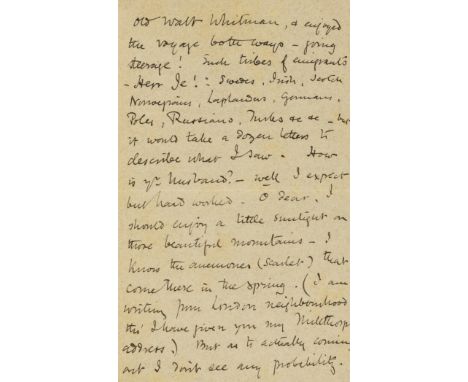 old Walt Whitman, & enjoyed
the voyage both ways – going
steerage! Such tribes of emigrants
– Herr Je! : Swedes, Irish, Scotch
Norwegians, Laplanders, Germans,
Poles, Russians, Turks &c &c – but
it would take a dozen letters to
describe what I saw. How
is yr husband? – well I expect
but hard worked. O dear, I
should enjoy a little sunlight on
those beautiful mountains – I
know the anemones (scarlet) that
come there in the spring. (I am
writing from London neighbourhood
tho' I have given you my Millthorpe
address.) But as to actually coming
out I don't see any probability.